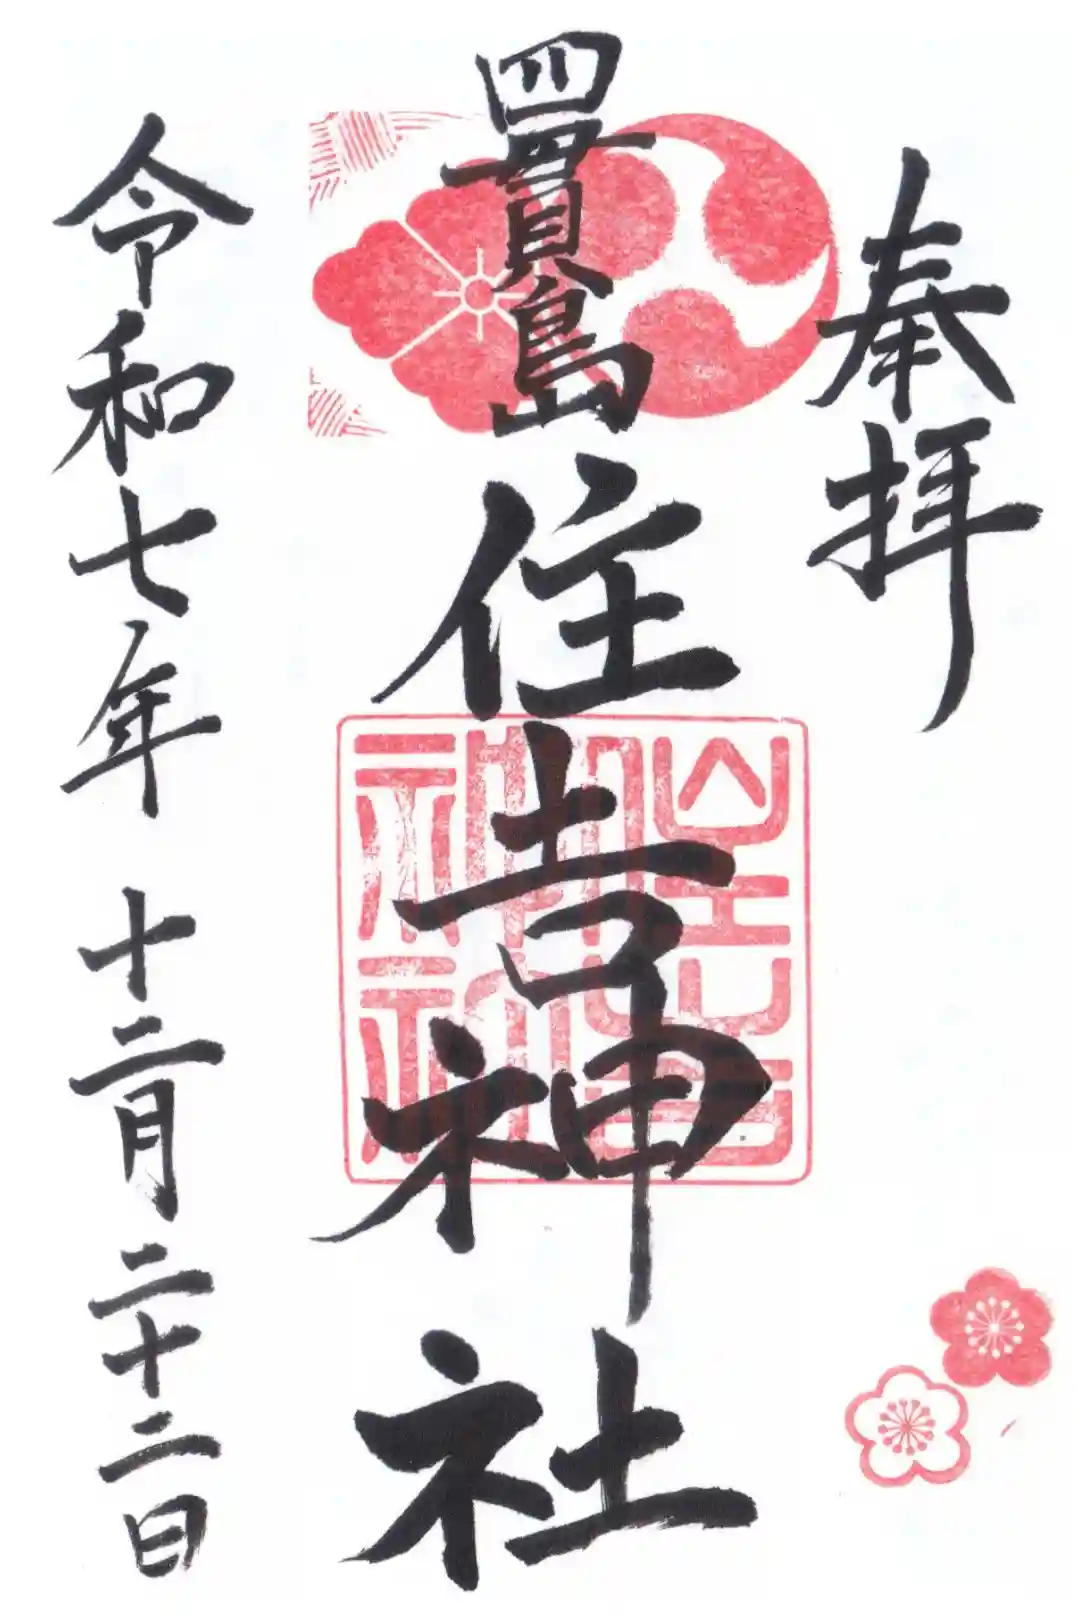 奉拝
四貫島住吉神社
住吉神社
令和七年 十二月二十二日